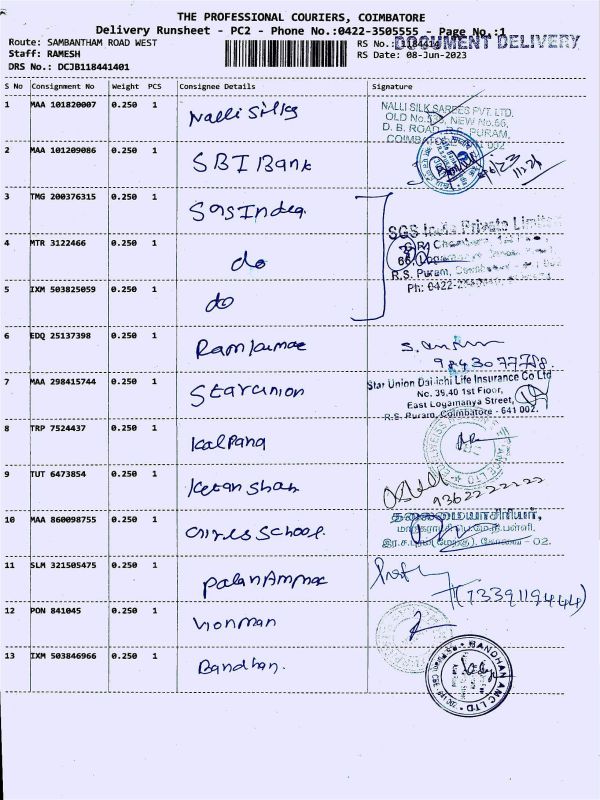 THE PROFESSIONAL COURIERS, COIMBATORE
Delivery Runsheet - PC2 - Phone No.:0422-3505555 - Page No.:1
DOCUMENT DELIVERY
Route: SAMBANTHAM ROAD WEST
RS No.: 1184414
Staff: RAMESH
RS Date: 08-Jun-2023
DRS No.: DCJB118441401
S No Consignment No Weight PCS Consignee Details Signature
1 MAA 101820007 0.250 1 Nalli Silks
NALLI SILK SAREES PVT. LTD.
OLD No.533, NEW No.66,
D. B. ROAD, R.S. PURAM,
COIMBATORE - 641 002
2 MAA 101209086 0.250 1 SBI Bank
3 TMG 200376315 0.250 1
SGS India Private Limited
4 MTR 3122466 0.250 1 do
R.S. Puram,
5 IXM 503825059 0.250 1 do
Ph: 0422-
6 EDQ 25137398 0.250 1 Ramkumar
9843077788
7 MAA 298415744 0.250 1 Starunion
Star Union Dai-ichi Life Insurance Co Ltd
No. 39,40 1st Floor,
East Logamanya Street,
R.S. Puram, Coimbatore - 641 002.
8 TRP 7524437 0.250 1 Kalpana
9 TUT 6473854 0.250 1 Ketan Shah
9362222222
10 MAA 860098755 0.250 1 School.
தலைமையாசிரியர்,
கோவை - 02.
11 SLM 321505475 0.250 1
(7339119444)
12 PON 841045 0.250 1
13 IXM 503846966 0.250 1 Bandhan.
BANDHAN AMC LTD